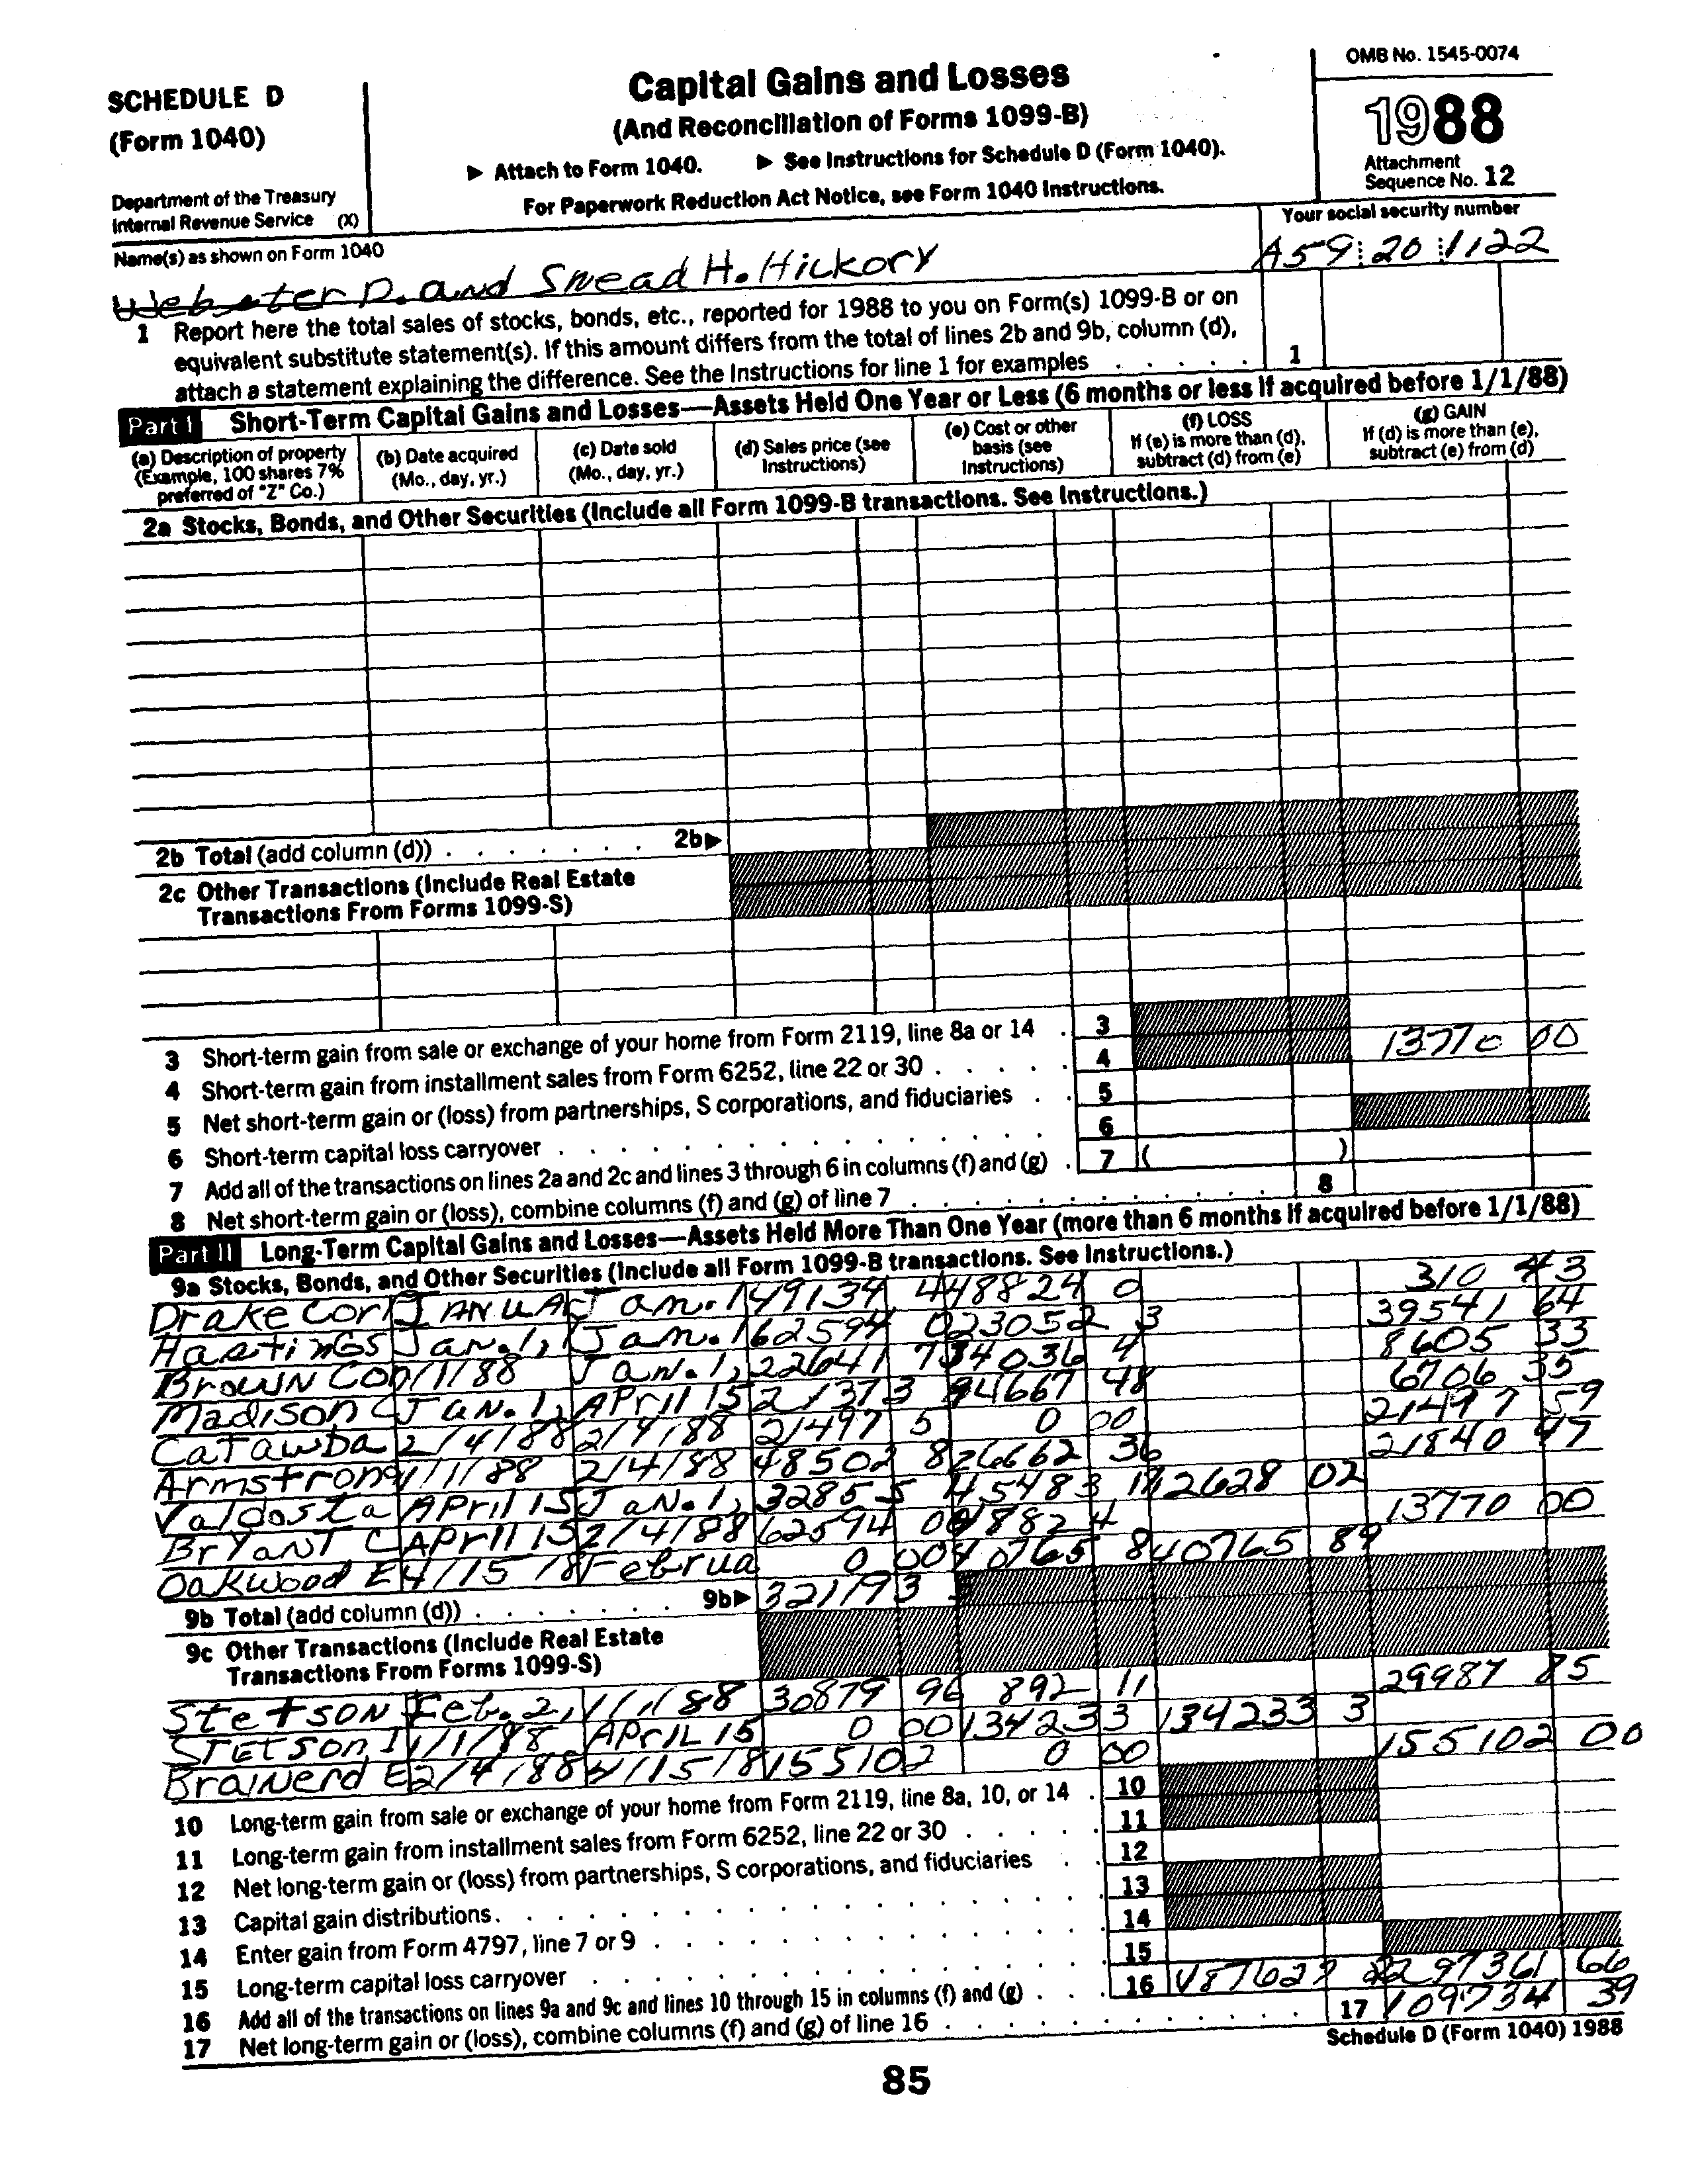 SCHEDULE D
(Form 1040)
Department of the Treasury
Internal Revenue Service (X)
Capital Gains and Losses
(And Reconciliation of Forms 1099-B)
▶ Attach to Form 1040. ▶ See Instructions for Schedule D (Form 1040).
For Paperwork Reduction Act Notice, see Form 1040 Instructions.
OMB No. 1545-0074
1988
Attachment
Sequence No. 12
Name(s) as shown on Form 1040
Webster D. and Snead H. Hickory
Your social security number
A59 20 1122
1 Report here the total sales of stocks, bonds, etc., reported for 1988 to you on Form(s) 1099-B or on
equivalent substitute statement(s). If this amount differs from the total of lines 2b and 9b, column (d),
attach a statement explaining the difference. See the Instructions for line 1 for examples . . . . . 1
Part I Short-Term Capital Gains and Losses—Assets Held One Year or Less (6 months or less if acquired before 1/1/88)
(a) Description of property (Example, 100 shares 7% preferred of "Z" Co.)
(b) Date acquired (Mo., day, yr.)
(c) Date sold (Mo., day, yr.)
(d) Sales price (see Instructions)
(e) Cost or other basis (see Instructions)
(f) LOSS If (e) is more than (d), subtract (d) from (e)
(g) GAIN If (d) is more than (e), subtract (e) from (d)
2a Stocks, Bonds, and Other Securities (Include all Form 1099-B transactions. See Instructions.)
2b Total (add column (d)) . . . . . . . 2b▶
2c Other Transactions (Include Real Estate
Transactions From Forms 1099-S)
3 Short-term gain from sale or exchange of your home from Form 2119, line 8a or 14 . 3
4 Short-term gain from installment sales from Form 6252, line 22 or 30 . . . . . 4 13770 00
5 Net short-term gain or (loss) from partnerships, S corporations, and fiduciaries . . 5
6 Short-term capital loss carryover . . . . . . . . . . . . . . 6
7 Add all of the transactions on lines 2a and 2c and lines 3 through 6 in columns (f) and (g) . 7 ( )
8 Net short-term gain or (loss), combine columns (f) and (g) of line 7 . . . . . . . . . . . 8
Part II Long-Term Capital Gains and Losses—Assets Held More Than One Year (more than 6 months if acquired before 1/1/88)
9a Stocks, Bonds, and Other Securities (Include all Form 1099-B transactions. See Instructions.)
Drake Cor JANUA Jan. 1 49134 448824 0 310 43
Hastings Jan. 1, Jan. 1 62594 023052 3 39541 64
Brown Co 1/1/88 Jan. 1, 22641 7 34036 4 8605 33
Madison C Jan. 1, April 15 21373 94667 48 6706 35
Catawba 2/4/88 2/4/88 21497 5 0 00 21497 59
Armstrong 1/1/88 2/4/88 48502 8 26662 36 21840 47
Valdosta April 15 Jan. 1, 32855 45483 12628 02
Bryant C April 15 2/4/88 62594 48824 13770 00
Oakwood E 4/15/8 Februa 0 00 40765 8 40765 89
9b Total (add column (d)) . . . . . . . 9b▶ 321193
9c Other Transactions (Include Real Estate
Transactions From Forms 1099-S)
Stetson Feb. 2, 1/1/88 30879 96 892 11 29987 85
Stetson I 1/1/88 April 15 0 00 134233 134233 3
Brainerd E 2/4/88 4/15/8 155102 0 00 155102 00
10 Long-term gain from sale or exchange of your home from Form 2119, line 8a, 10, or 14 . 10
11 Long-term gain from installment sales from Form 6252, line 22 or 30 . . . . . 11
12 Net long-term gain or (loss) from partnerships, S corporations, and fiduciaries . . 12
13 Capital gain distributions. . . . . . . . . . . . . . . . . 13
14 Enter gain from Form 4797, line 7 or 9 . . . . . . . . . . . . 14
15 Long-term capital loss carryover . . . . . . . . . . . . . . 15
16 Add all of the transactions on lines 9a and 9c and lines 10 through 15 in columns (f) and (g) . . . 16 187627 2 297361 66
17 Net long-term gain or (loss), combine columns (f) and (g) of line 16 . . . . . . . . . . . 17 109734 39
Schedule D (Form 1040) 1988
85